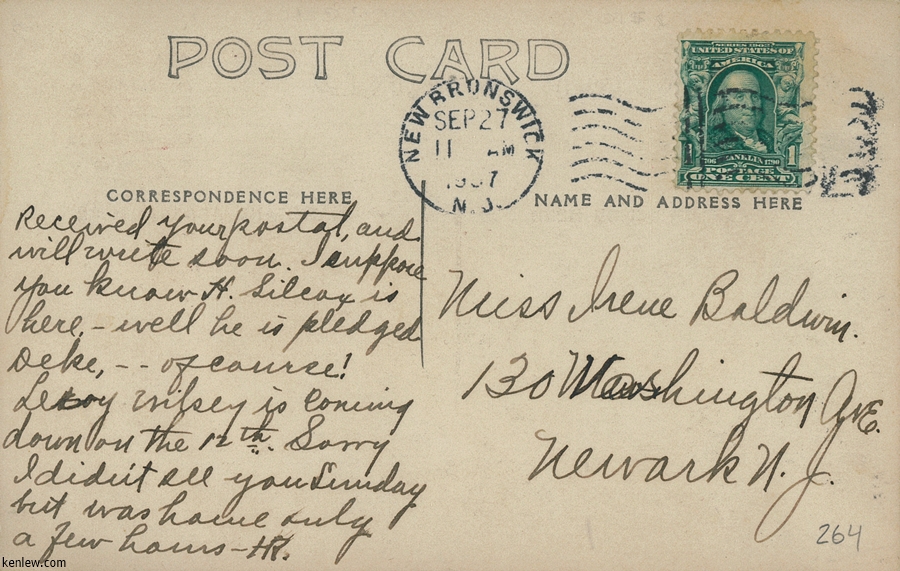 POST CARD
NEW BRUNSWICK
SEP 27
11 AM
1907
N.J.
SERIES 1902
UNITED STATES OF
AMERICA
1 FRANKLIN 1790 1
POSTAGE
ONE CENT
CORRESPONDENCE HERE
Received your postal, and
will write soon. I suppose
you know H. Silcox is
here, - well he is pledged
Deke, -- of course!
Leroy Wilsey is coming
down on the 12th. Sorry
I didn't see you Sunday
but was home only
a few hours - HR.
NAME AND ADDRESS HERE
Miss Irene Baldwin.
130 Washington Ave.
Newark N.J.
264
kenlew.com